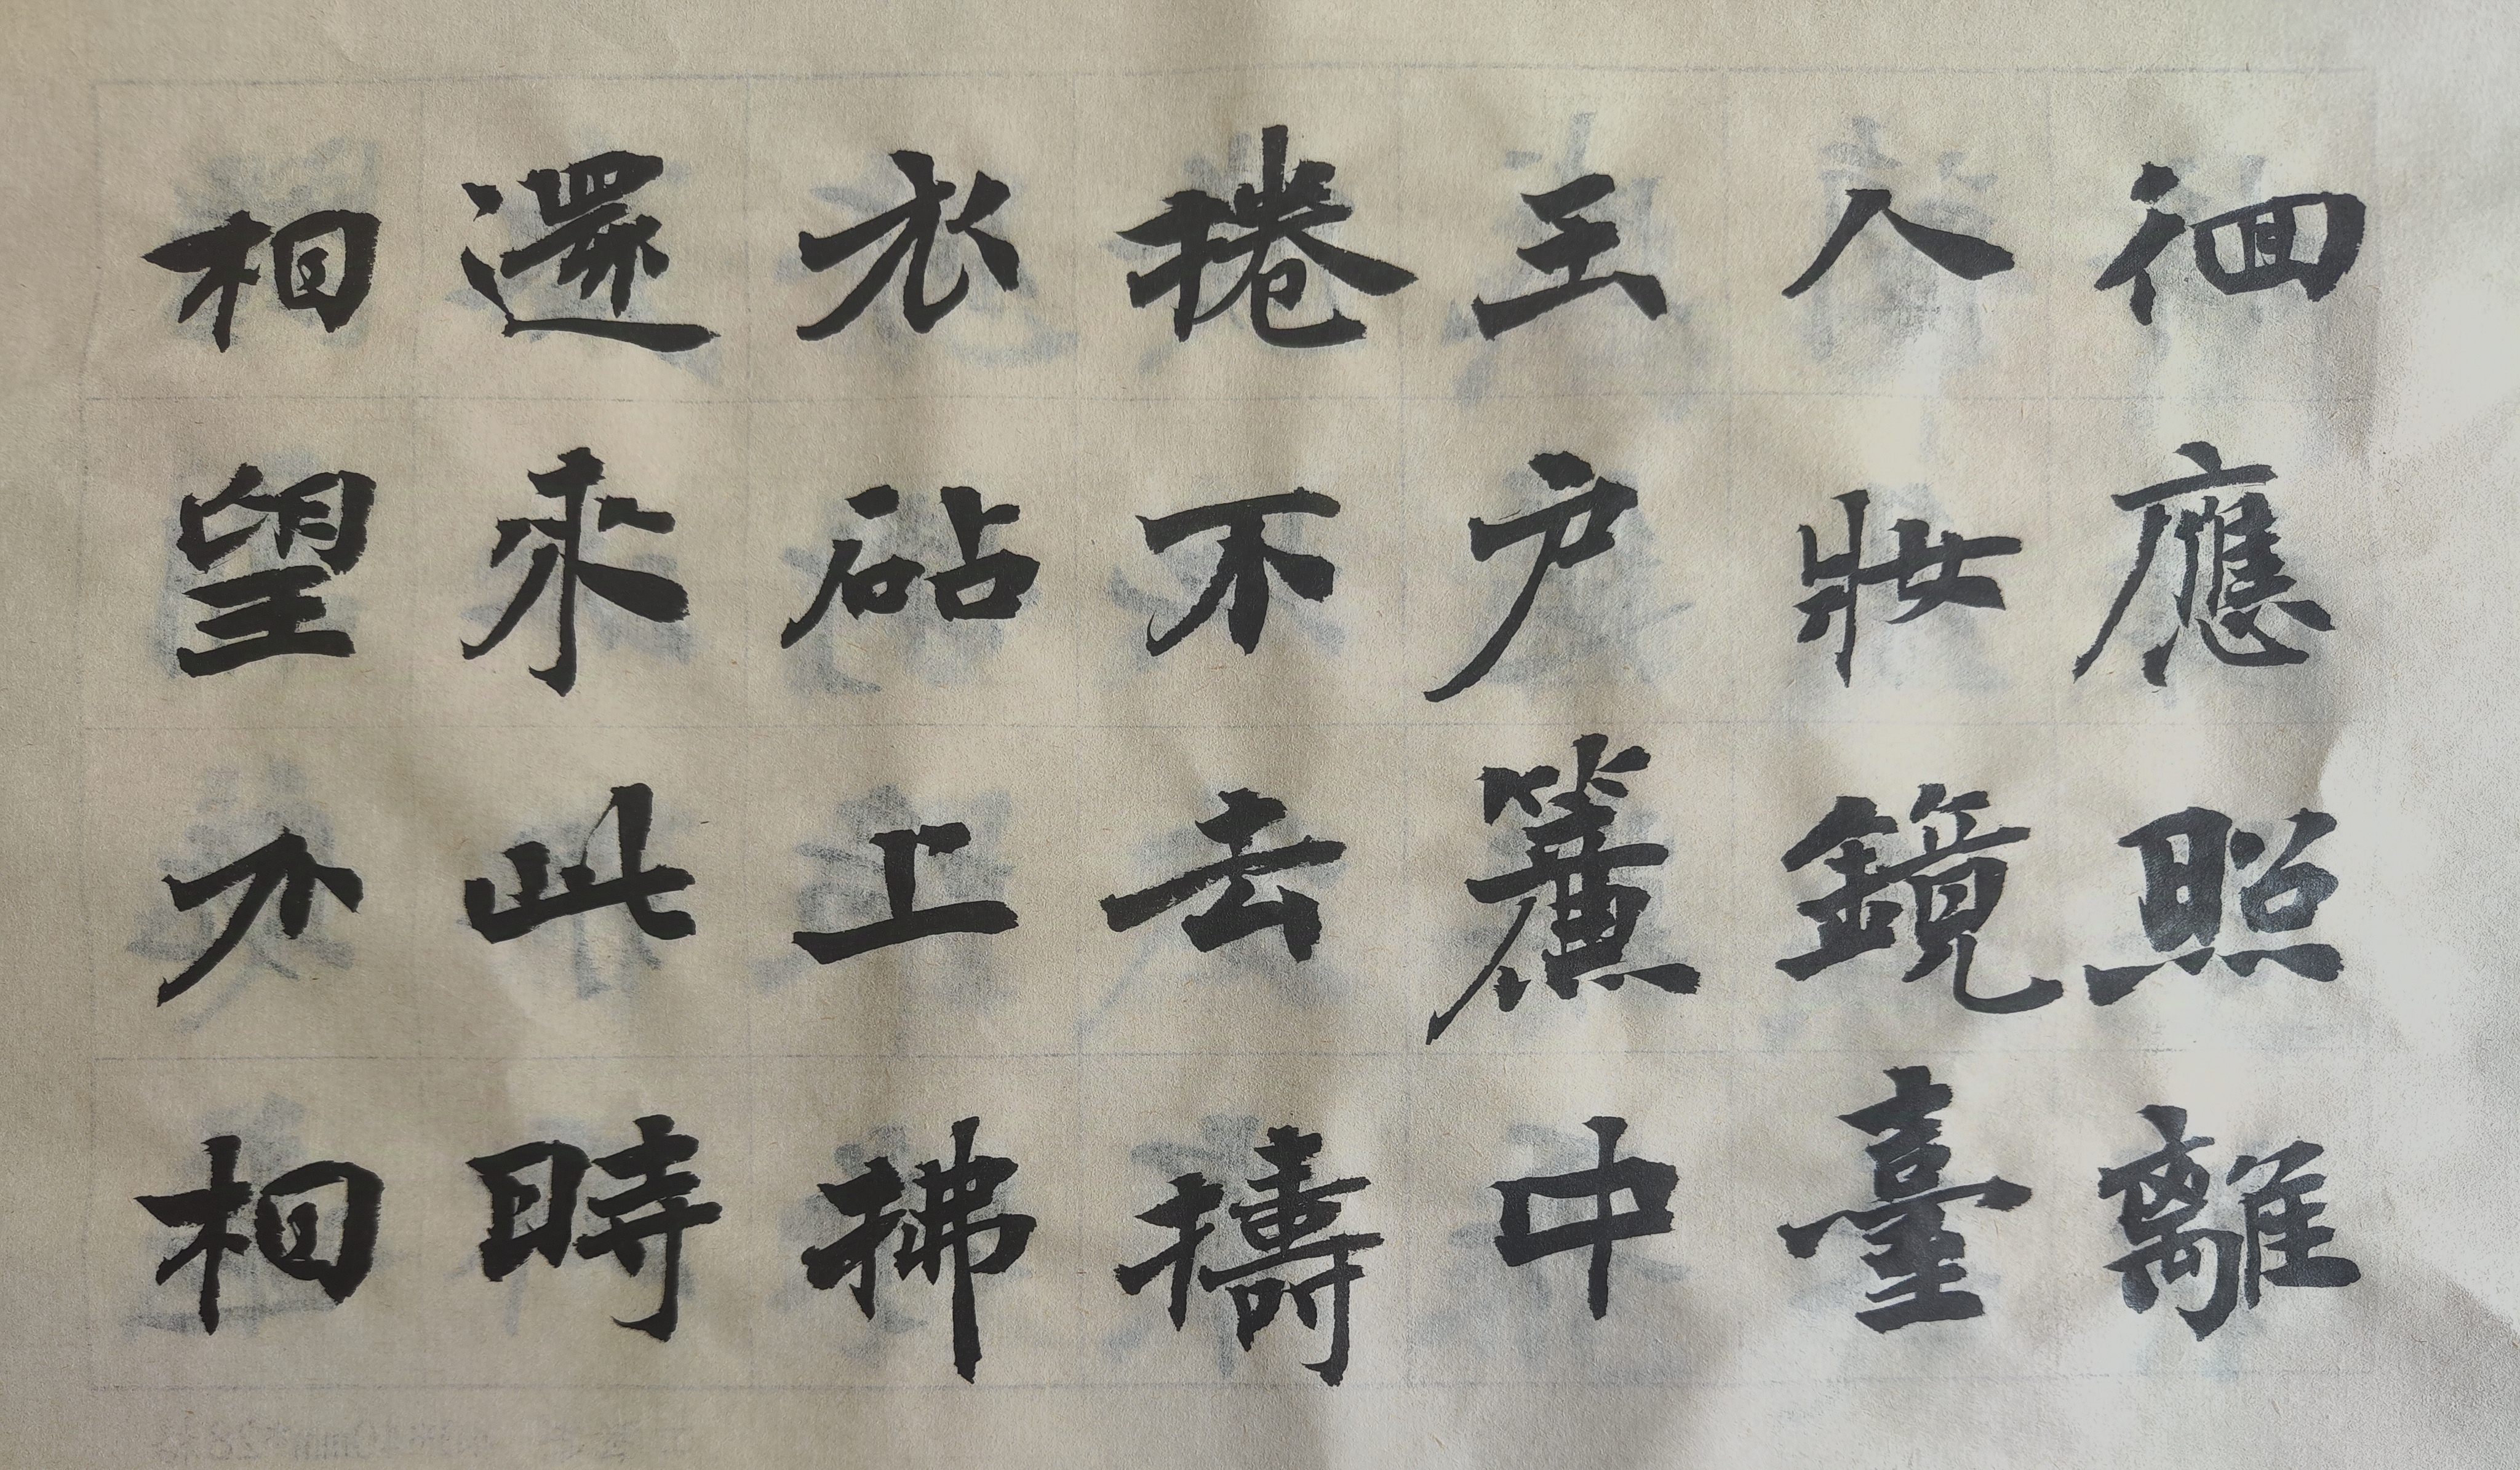 徊應照離
人妝鏡臺
玉户簾中
捲不去擣
衣砧上拂
還來此時
相望不相